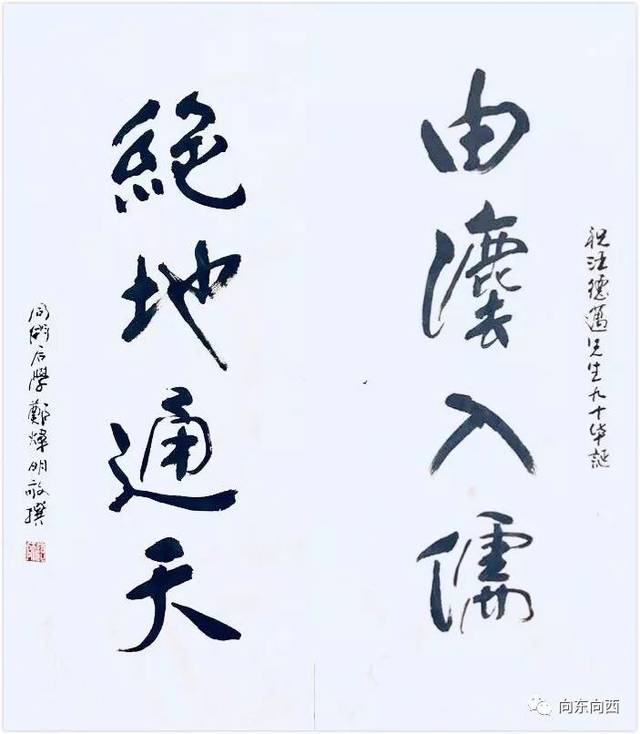 祝汪德邁先生九十华誕
由灋入儒
絶地通天
同術后學鄭煒明敬撰
向东向西